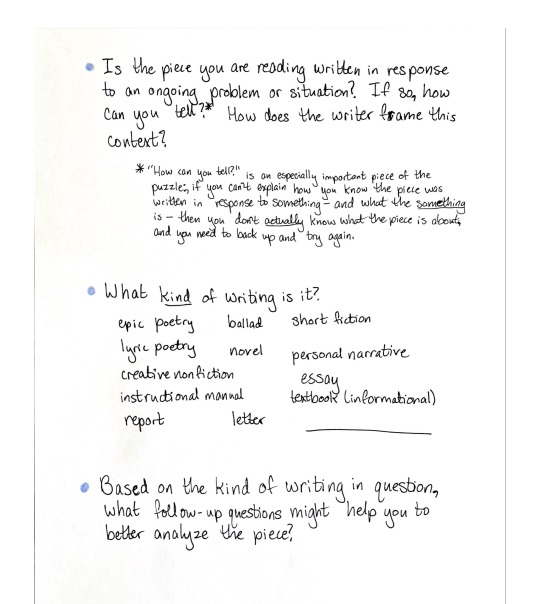 Is the piece you are reading written in response
to an ongoing problem or situation? If so, how
can you tell?* How does the writer frame this
context?
* "How can you tell?" is an especially important piece of the
puzzle; if you can't explain how you know the piece was
written in response to something – and what the something
is – then you don't actually know what the piece is about,
and you need to back up and try again.
What kind of writing is it?
epic poetry ballad short fiction
lyric poetry novel personal narrative
creative nonfiction essay
instructional manual textbook (informational)
report letter
Based on the kind of writing in question,
what follow-up questions might help you to
better analyze the piece?